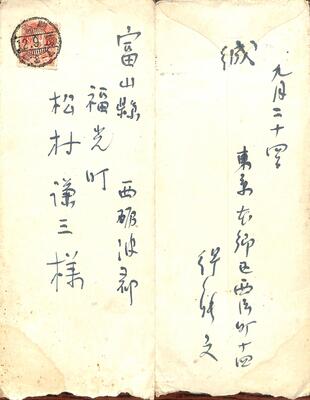 富山縣 西礪波郡
福光町
松村謙三様
緘
九月二十四日
東京本郷區西片町十四